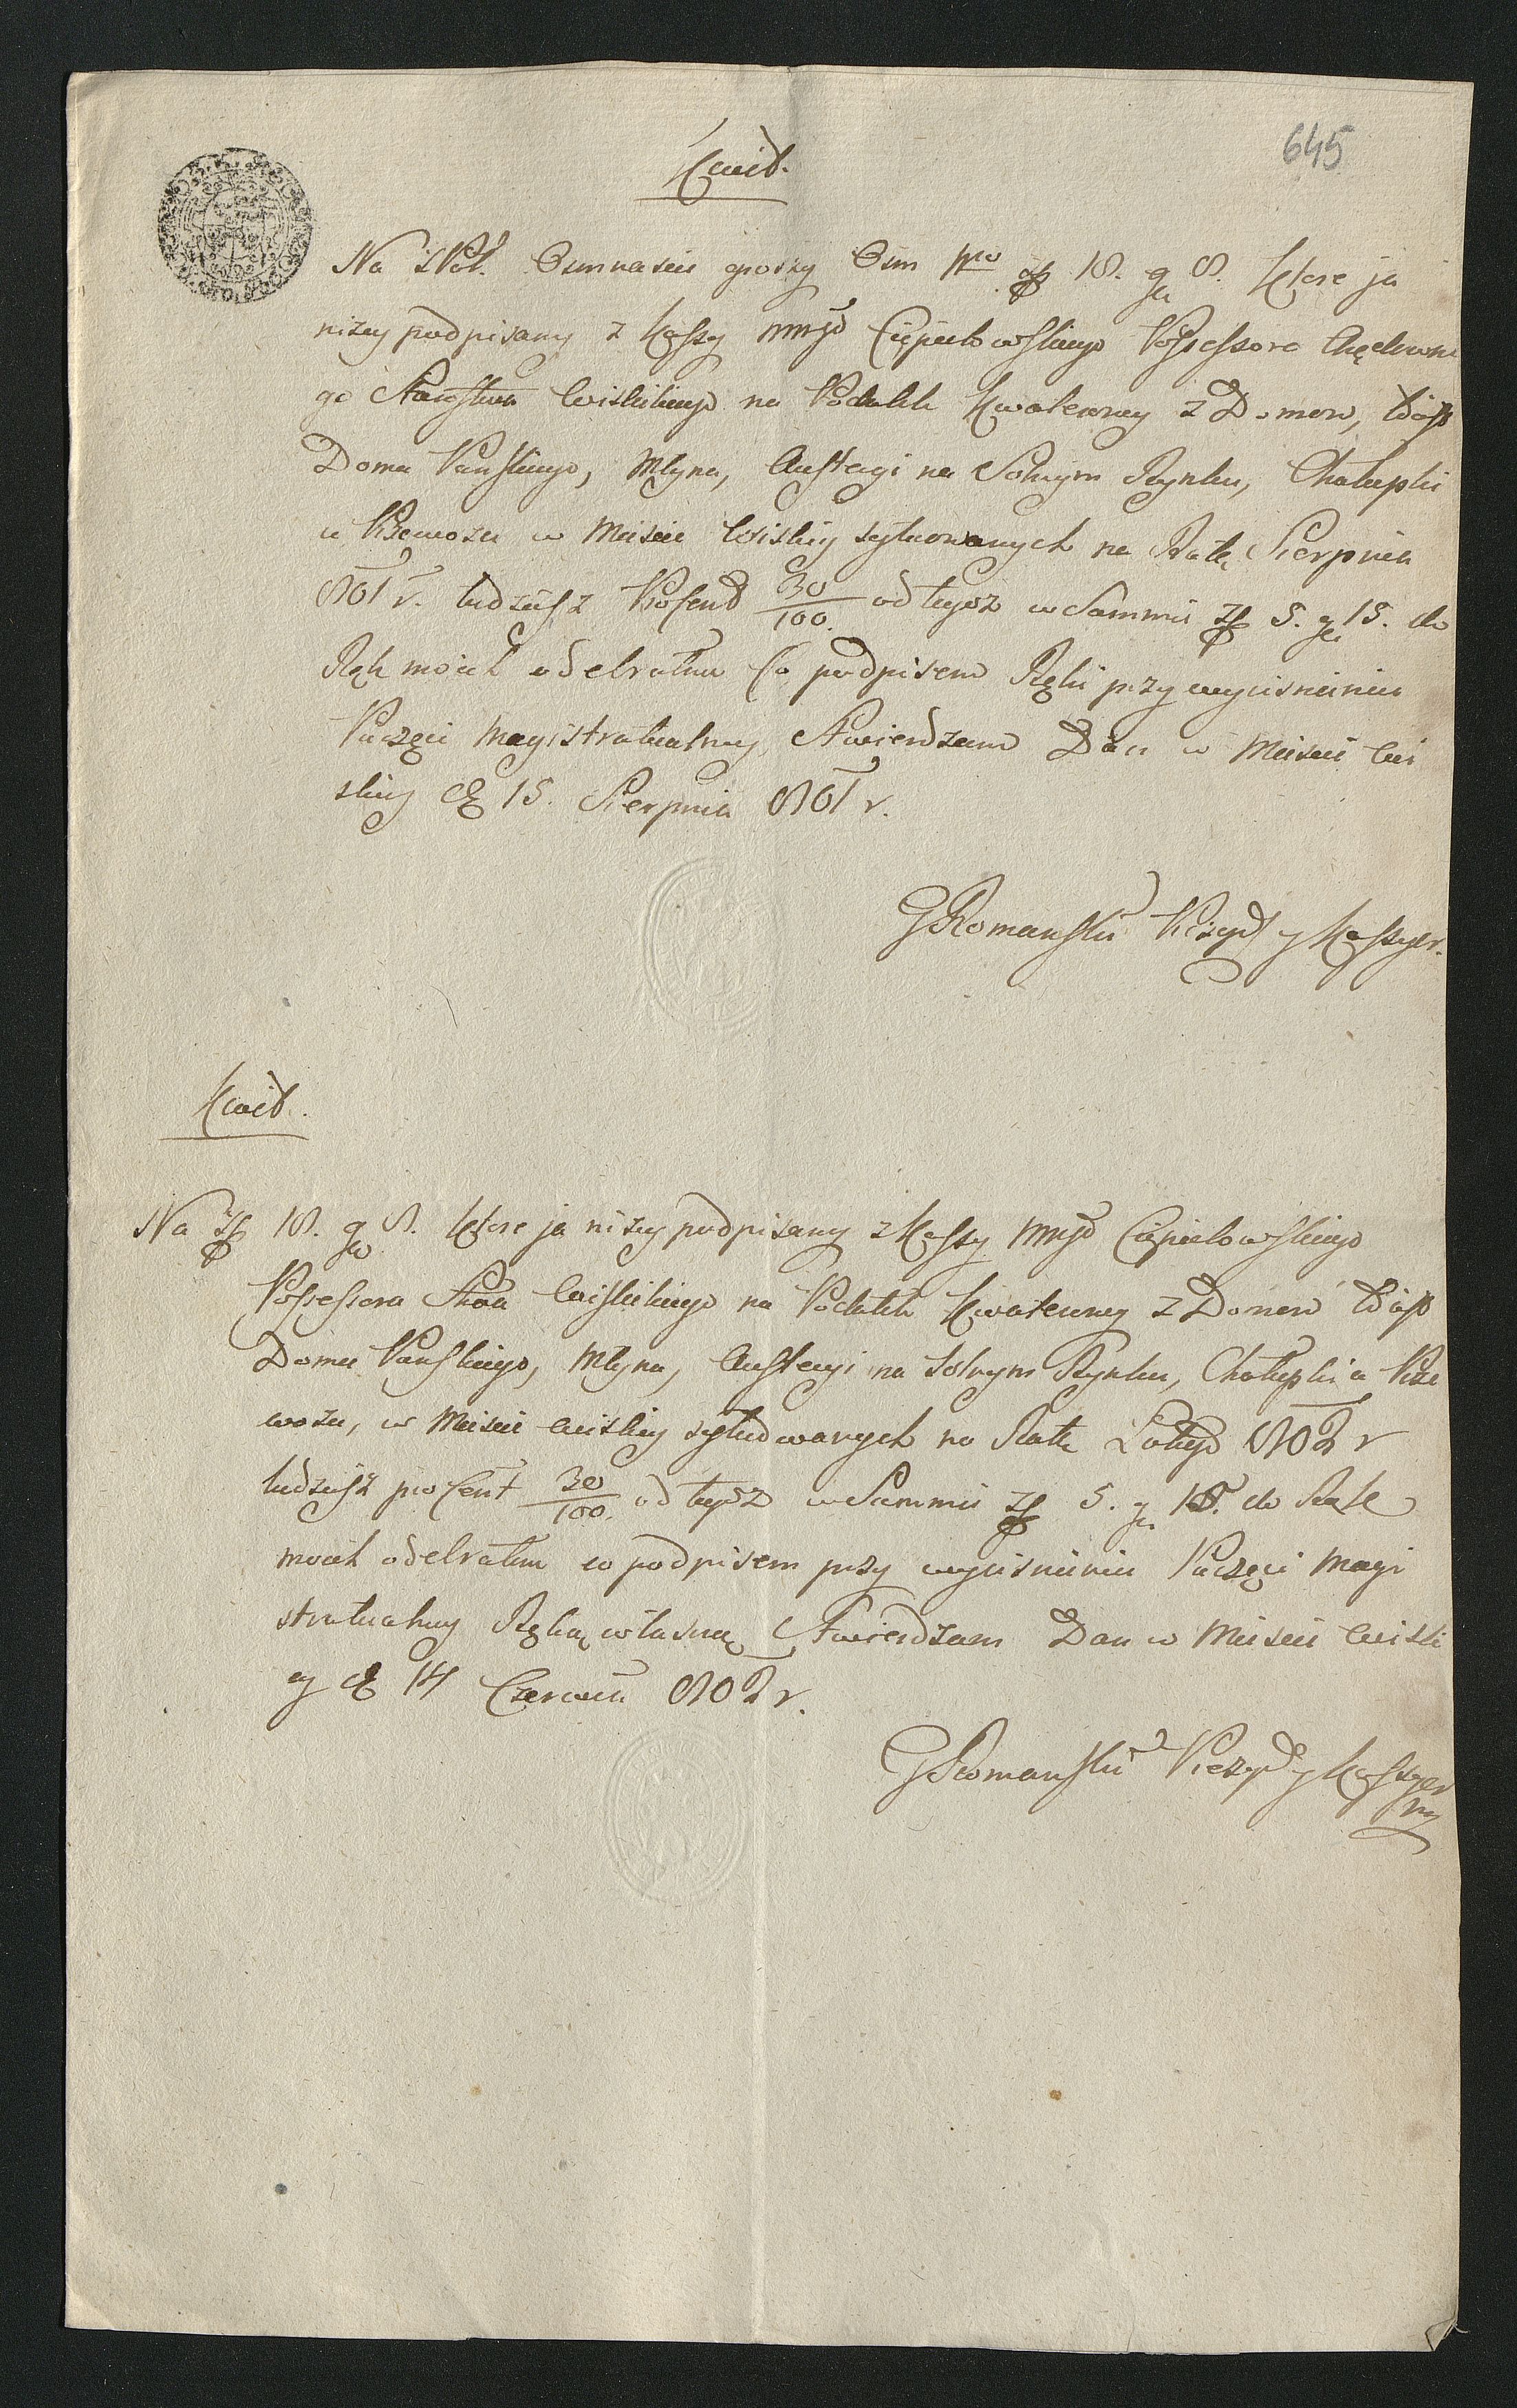 645
Kwit.
Na zł Pol. Osmnascie groszy Osm pro zł 18. gr 8. ktore ja
niżey podpisany z Kassy Cięciełowskiego Possessora
go Starostwa Wislickiego na Podatek Kwaterowy z Domow,
Domu Panskiego, Młyna, Austeryi na Solnym Rynku, Chałupki
u Przewozu w Miescie Wislicy sytuowanych na Ratę Sierpnia
801 r. tudzież z Procent 30/100 od tegoż w Summie zł 5. gr 15. do
Rąk moich odebrałem Co podpisem Ręki przy wycisnieniu
Pieczęci Magistratualney Stwierdzam Dan w Miescie Wi
slicy d 15. Sierpnia 801 r.
GRomanski Prezyd y Kassyer.
Kwit.
Na zł 18. gr 8. ktore ja niżey podpisany z Kassy Cięciełowskiego
Possessora Stwa Wislickiego na Podatek Kwaterowy z Domow
Domu Panskiego, Młyna, Austeryi na Solnym Rynku, Chałupki u Prze
wozu, w Miescie Wislicy sytuowanych na Ratę Lutego 802 r
tudzież procent 30/100 od tegoż w Summie zł 5. gr 15. do Rąk
moich odebrałem co podpisem przy wycisnieniu Pieczęci Magi
stratualney Ręką własną Stwierdzam Dan w Miescie Wisli
cy d 14 Czerwca 802 r.
GRomanski Prezyd y Kassyer
mp